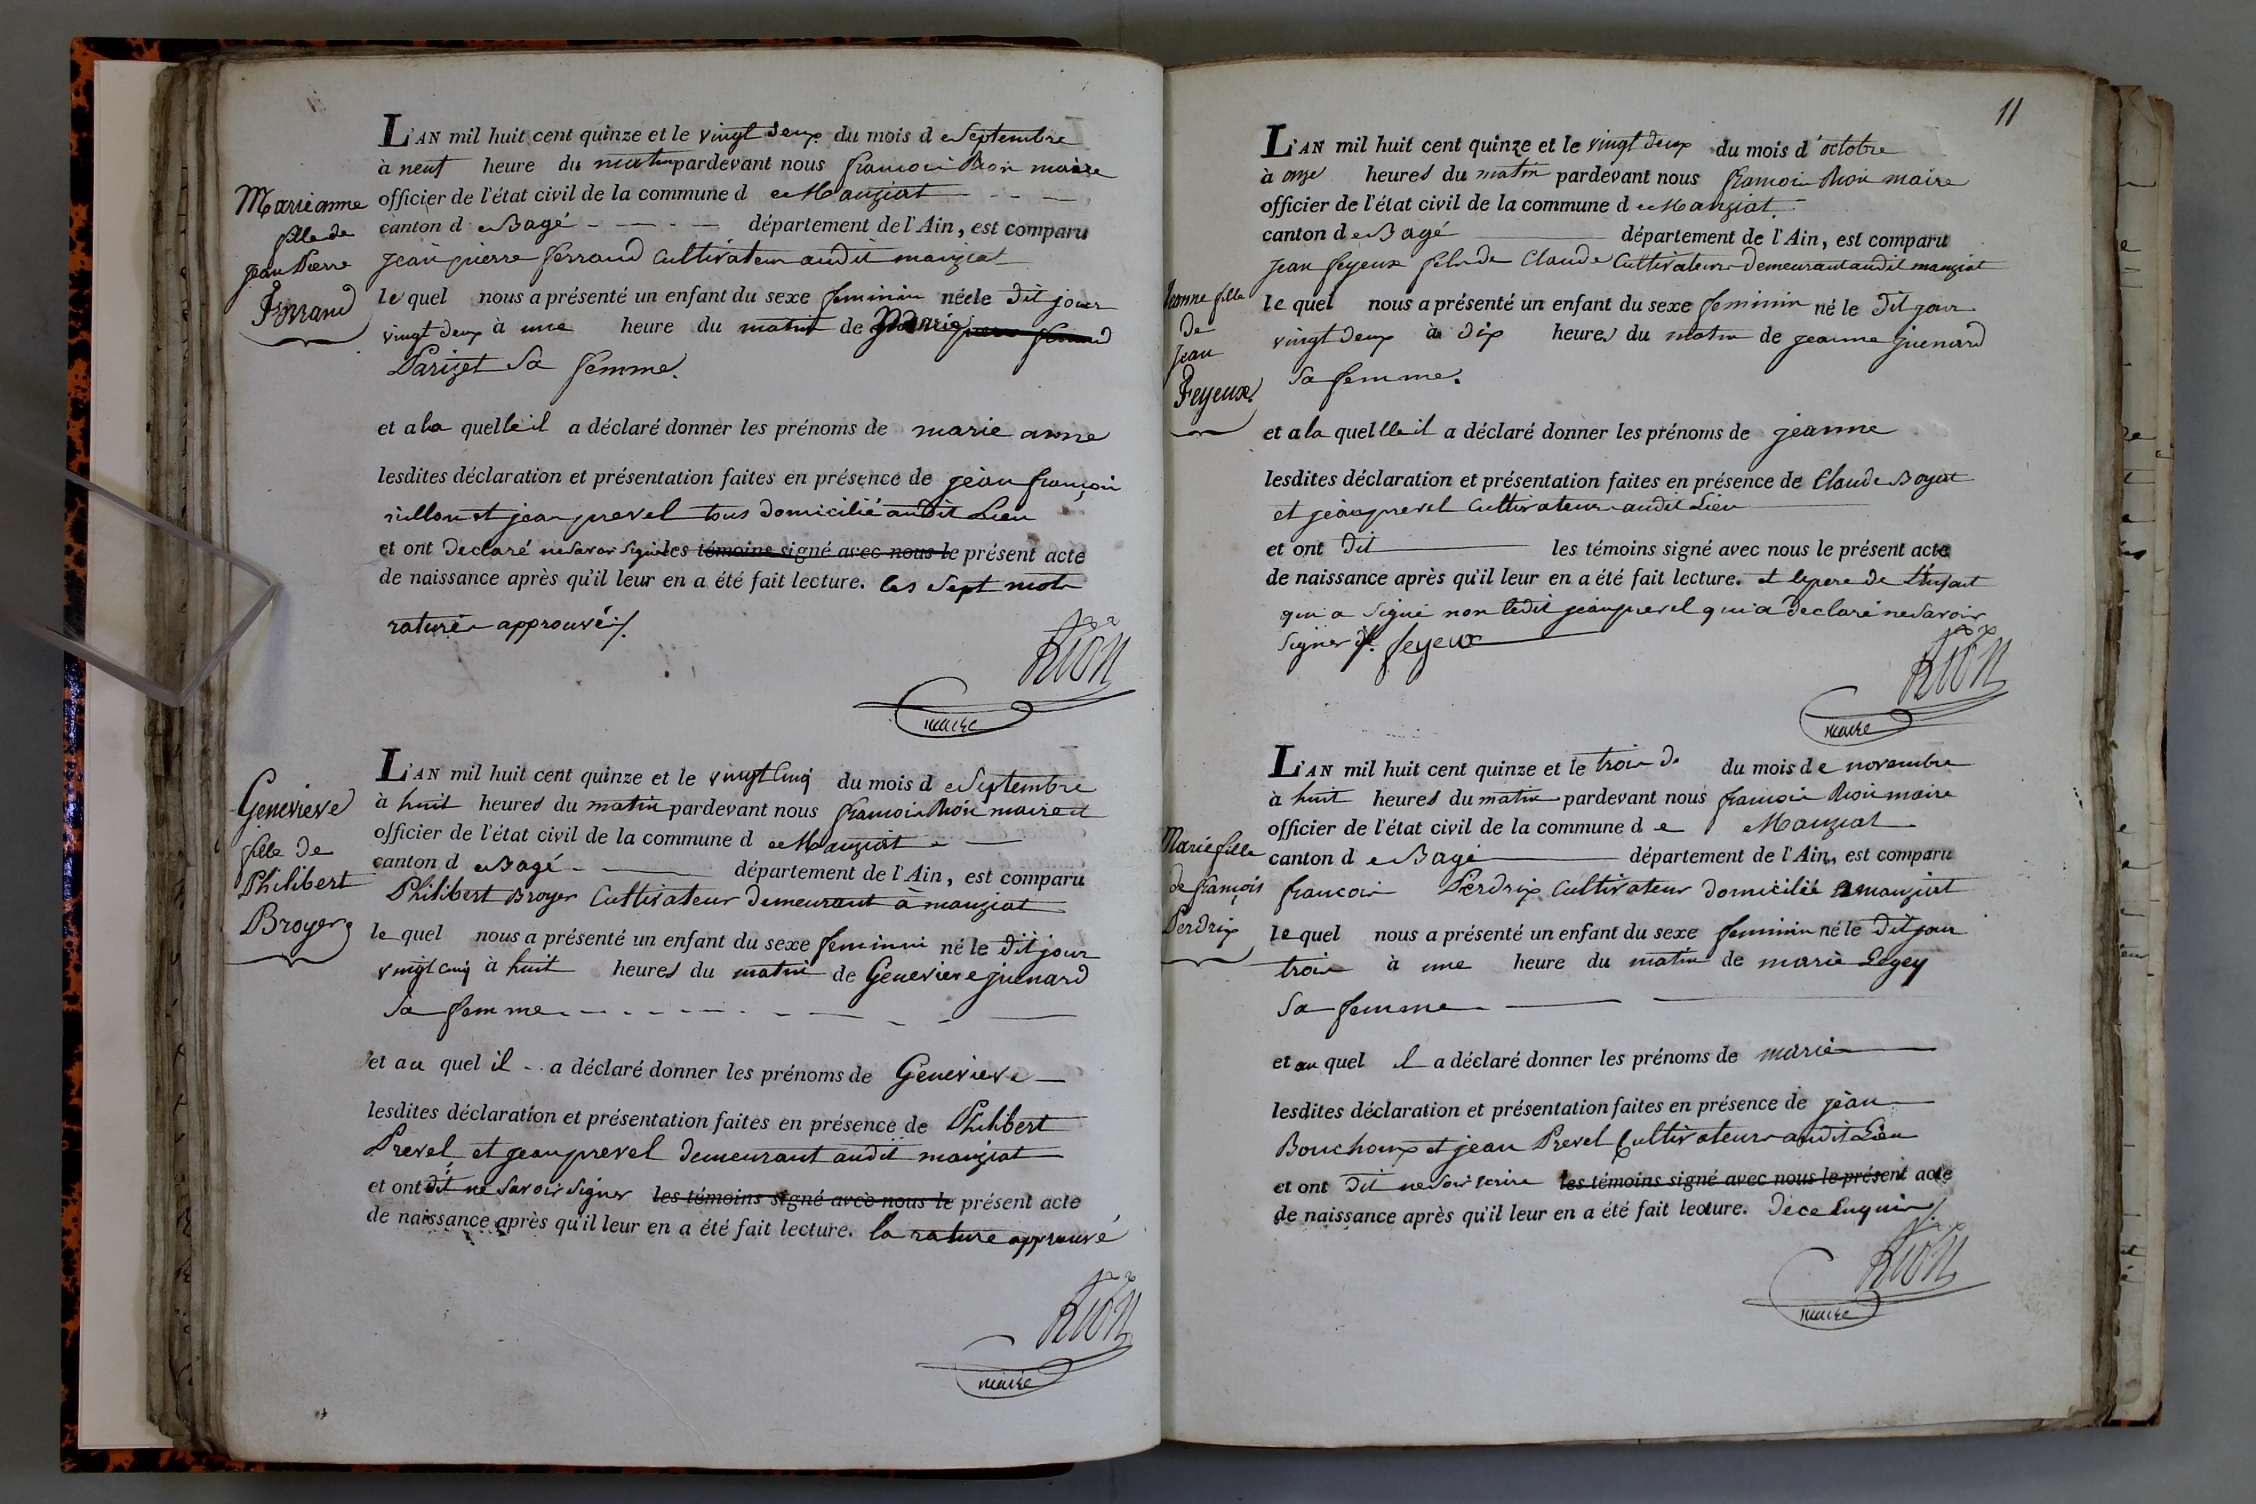 Marie anne
fille de
Jean Pierre
Ferrand
L'AN mil huit cent quinze et le vingt deux du mois d e Septembre
à neuf heure du matin pardevant nous francois Rion maire
officier de l'état civil de la commune d e Manziat
canton d e Bagé département de l'Ain, est comparu
jean pierre ferrand Cultivateur audit manziat
le quel nous a présenté un enfant du sexe feminin née le dit jour
vingt deux à une heure du matin de Marie
Parizet Sa femme.
et a la quelle il a déclaré donner les prénoms de marie anne
lesdites déclaration et présentation faites en présence de jean francois
et jean prevel tous domicilié audit Lieu
et ont declaré ne Savoir Signer les témoins signé avec nous le présent acte
de naissance après qu'il leur en a été fait lecture. les Sept mots
raturés approuvés
Rion
maire
Genevieve
fille de
Philibert
Broyer
L'AN mil huit cent quinze et le vingt Cinq du mois d e Septembre
à huit heures du matin pardevant nous francois Rion maire et
officier de l'état civil de la commune d e Manziat
canton d e Bagé département de l'Ain, est comparu
Philibert Broyer Cultivateur demeurant à manziat
le quel nous a présenté un enfant du sexe feminin né le dit jour
vingt cinq à huit heures du matin de Genevieve juenard
Sa femme
et au quel il a déclaré donner les prénoms de Genevieve
lesdites déclaration et présentation faites en présence de Philibert
Prevel et jean prevel demeurant audit manziat
et ont dit ne Savoir Signer les témoins signé avec nous le présent acte
de naissance après qu'il leur en a été fait lecture. la rature approuvé
Rion
maire
11
Jeanne fille
de
Jean
Feyeux
L'AN mil huit cent quinze et le vingt deux du mois d'octobre
à onze heures du matin pardevant nous francois Rion maire
officier de l'état civil de la commune d e Manziat
canton d e Bagé département de l'Ain, est comparu
jean feyeux fils de Claude Cultivateur demeurant audit manziat
le quel nous a présenté un enfant du sexe feminin né le dit jour
vingt deux à dix heures du matin de jeanne juenard
Sa femme.
et a la quelle il a déclaré donner les prénoms de jeanne
lesdites déclaration et présentation faites en présence de Claude Boyat
et jean prevel Cultivateurs audit Lieu
et ont dit les témoins signé avec nous le présent acte
de naissance après qu'il leur en a été fait lecture. et le pere de L'enfant
qui a Signé non ledit jean prevel qui a declaré ne Savoir
Signer feyeux
Rion
maire
Marie fille
de françois
Perdrix
L'AN mil huit cent quinze et le trois du mois de novembre
à huit heures du matin pardevant nous francois Rion maire
officier de l'état civil de la commune d e Manziat
canton d e Bagé département de l'Ain, est comparu
francois Perdrix Cultivateur domicilié a manziat
le quel nous a présenté un enfant du sexe feminin né le dit jour
trois à une heure du matin de marie
Sa femme
et au quel il a déclaré donner les prénoms de marie
lesdites déclaration et présentation faites en présence de jean
Bouchoux et jean Prevel Cultivateurs audit Lieu
et ont dit ne Savoir écrire les témoins signé avec nous le présent acte
de naissance après qu'il leur en a été fait lecture. de ce Enquis
Rion
maire